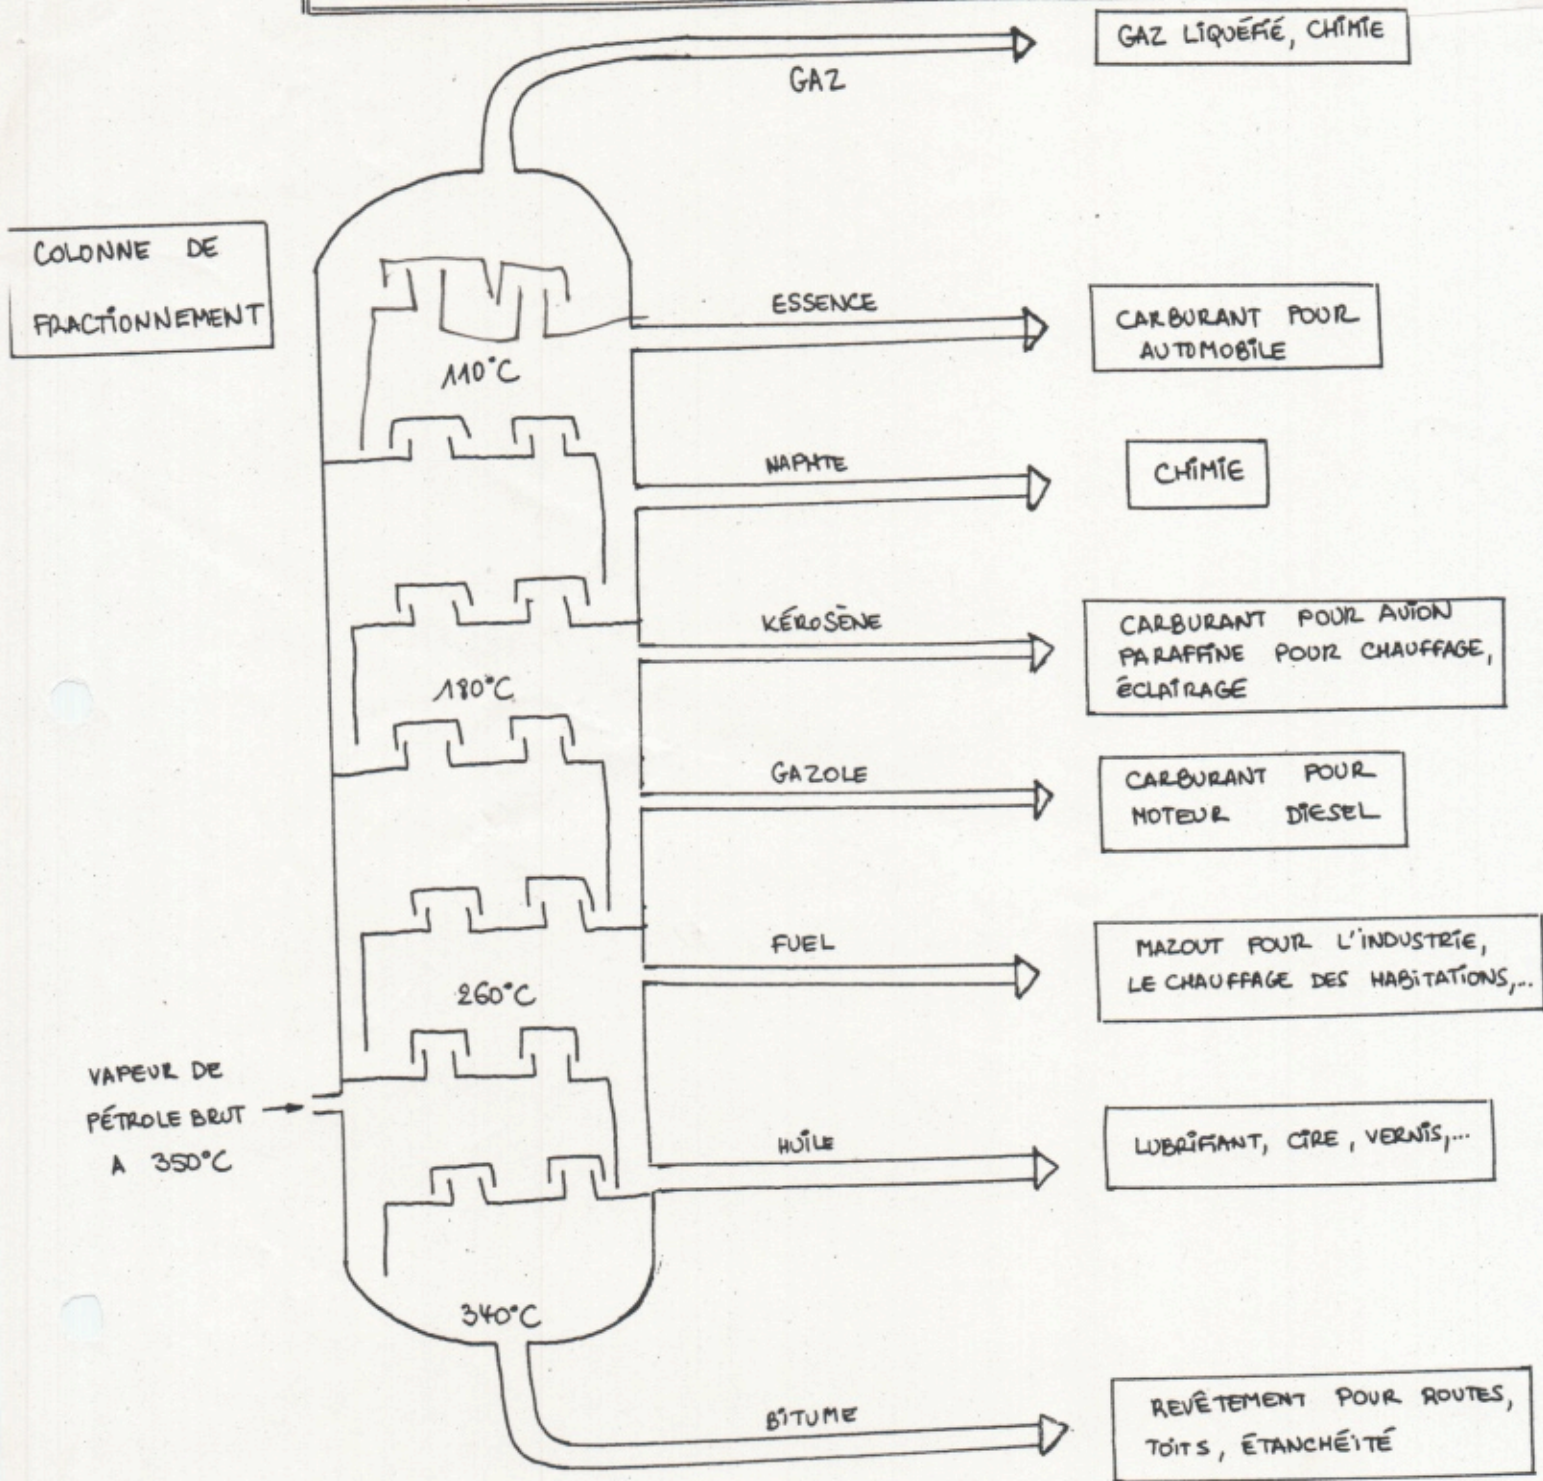 GAZ LIQUÉFIÉ, CHIMIE
GAZ
COLONNE DE
FRACTIONNEMENT
ESSENCE
CARBURANT POUR
AUTOMOBILE
110°C
NAPHTE
CHIMIE
KÉROSÈNE
CARBURANT POUR AVION
PARAFFINE POUR CHAUFFAGE,
ÉCLAIRAGE
180°C
GAZOLE
CARBURANT POUR
MOTEUR DIESEL
FUEL
MAZOUT POUR L'INDUSTRIE,
LE CHAUFFAGE DES HABITATIONS,...
260°C
VAPEUR DE
PÉTROLE BRUT
A 350°C
HUILE
LUBRIFIANT, CIRE, VERNIS,...
340°C
BITUME
REVÊTEMENT POUR ROUTES,
TOITS, ÉTANCHÉITÉ